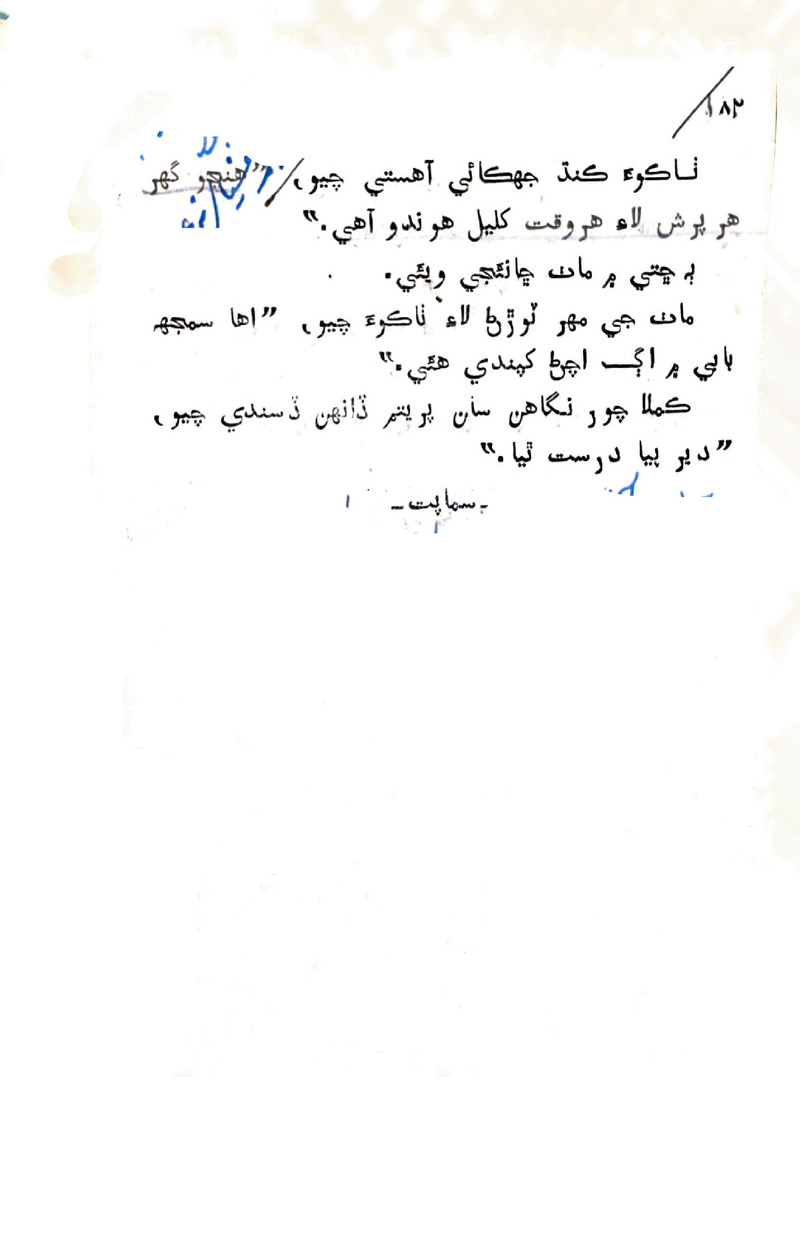 ۱۸۲
ٺاڪوءَ ڪنڌ جهڪائي آهستي چيو، ”هنجو گهر
هر پرش لاءِ هروقت کليل هوندو آهي.“
ٻه ڇتي ۾ ماٺ ڇانئجي ويئي.
ماٺ جي مهر ٽوڙڻ لاءِ ٺاڪوءَ چيو، ”اها سمجهه
ٻابي ۾ اڳ اچڻ کپندي هئي.“
ڪملا چور نگاهن سان پريتم ڏانهن ڏسندي چيو،
”دير پيا درست ٿيا.“
- سماپت -